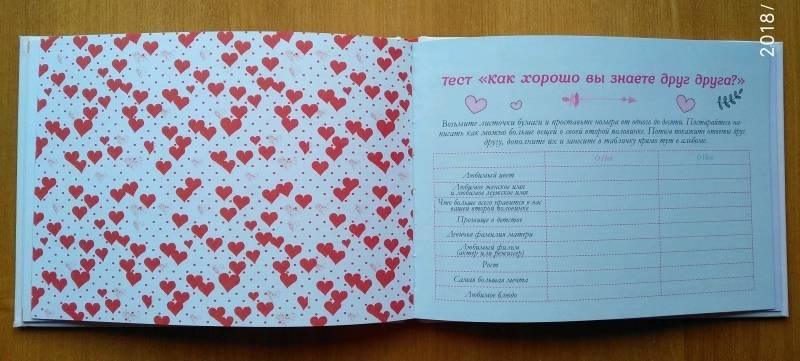 2018/
Тест «Как хорошо вы знаете друг друга?»
Возьмите листочки бумаги и проставьте номера от одного до десяти. Постарайтесь на-
писать как можно больше вещей о своей второй половинке. Потом покажите ответы друг
другу, дополните их и занесите в табличку прямо тут в альбоме.
О Ней
О Нем
Любимый цвет
Любимое женское имя
и любимое мужское имя
Что больше всего нравится в вас
вашей второй половинке
Прозвище в детстве
Девичья фамилия матери
Любимый фильм
(актер или режисер)
Рост
Самая большая мечта
Любимое блюдо